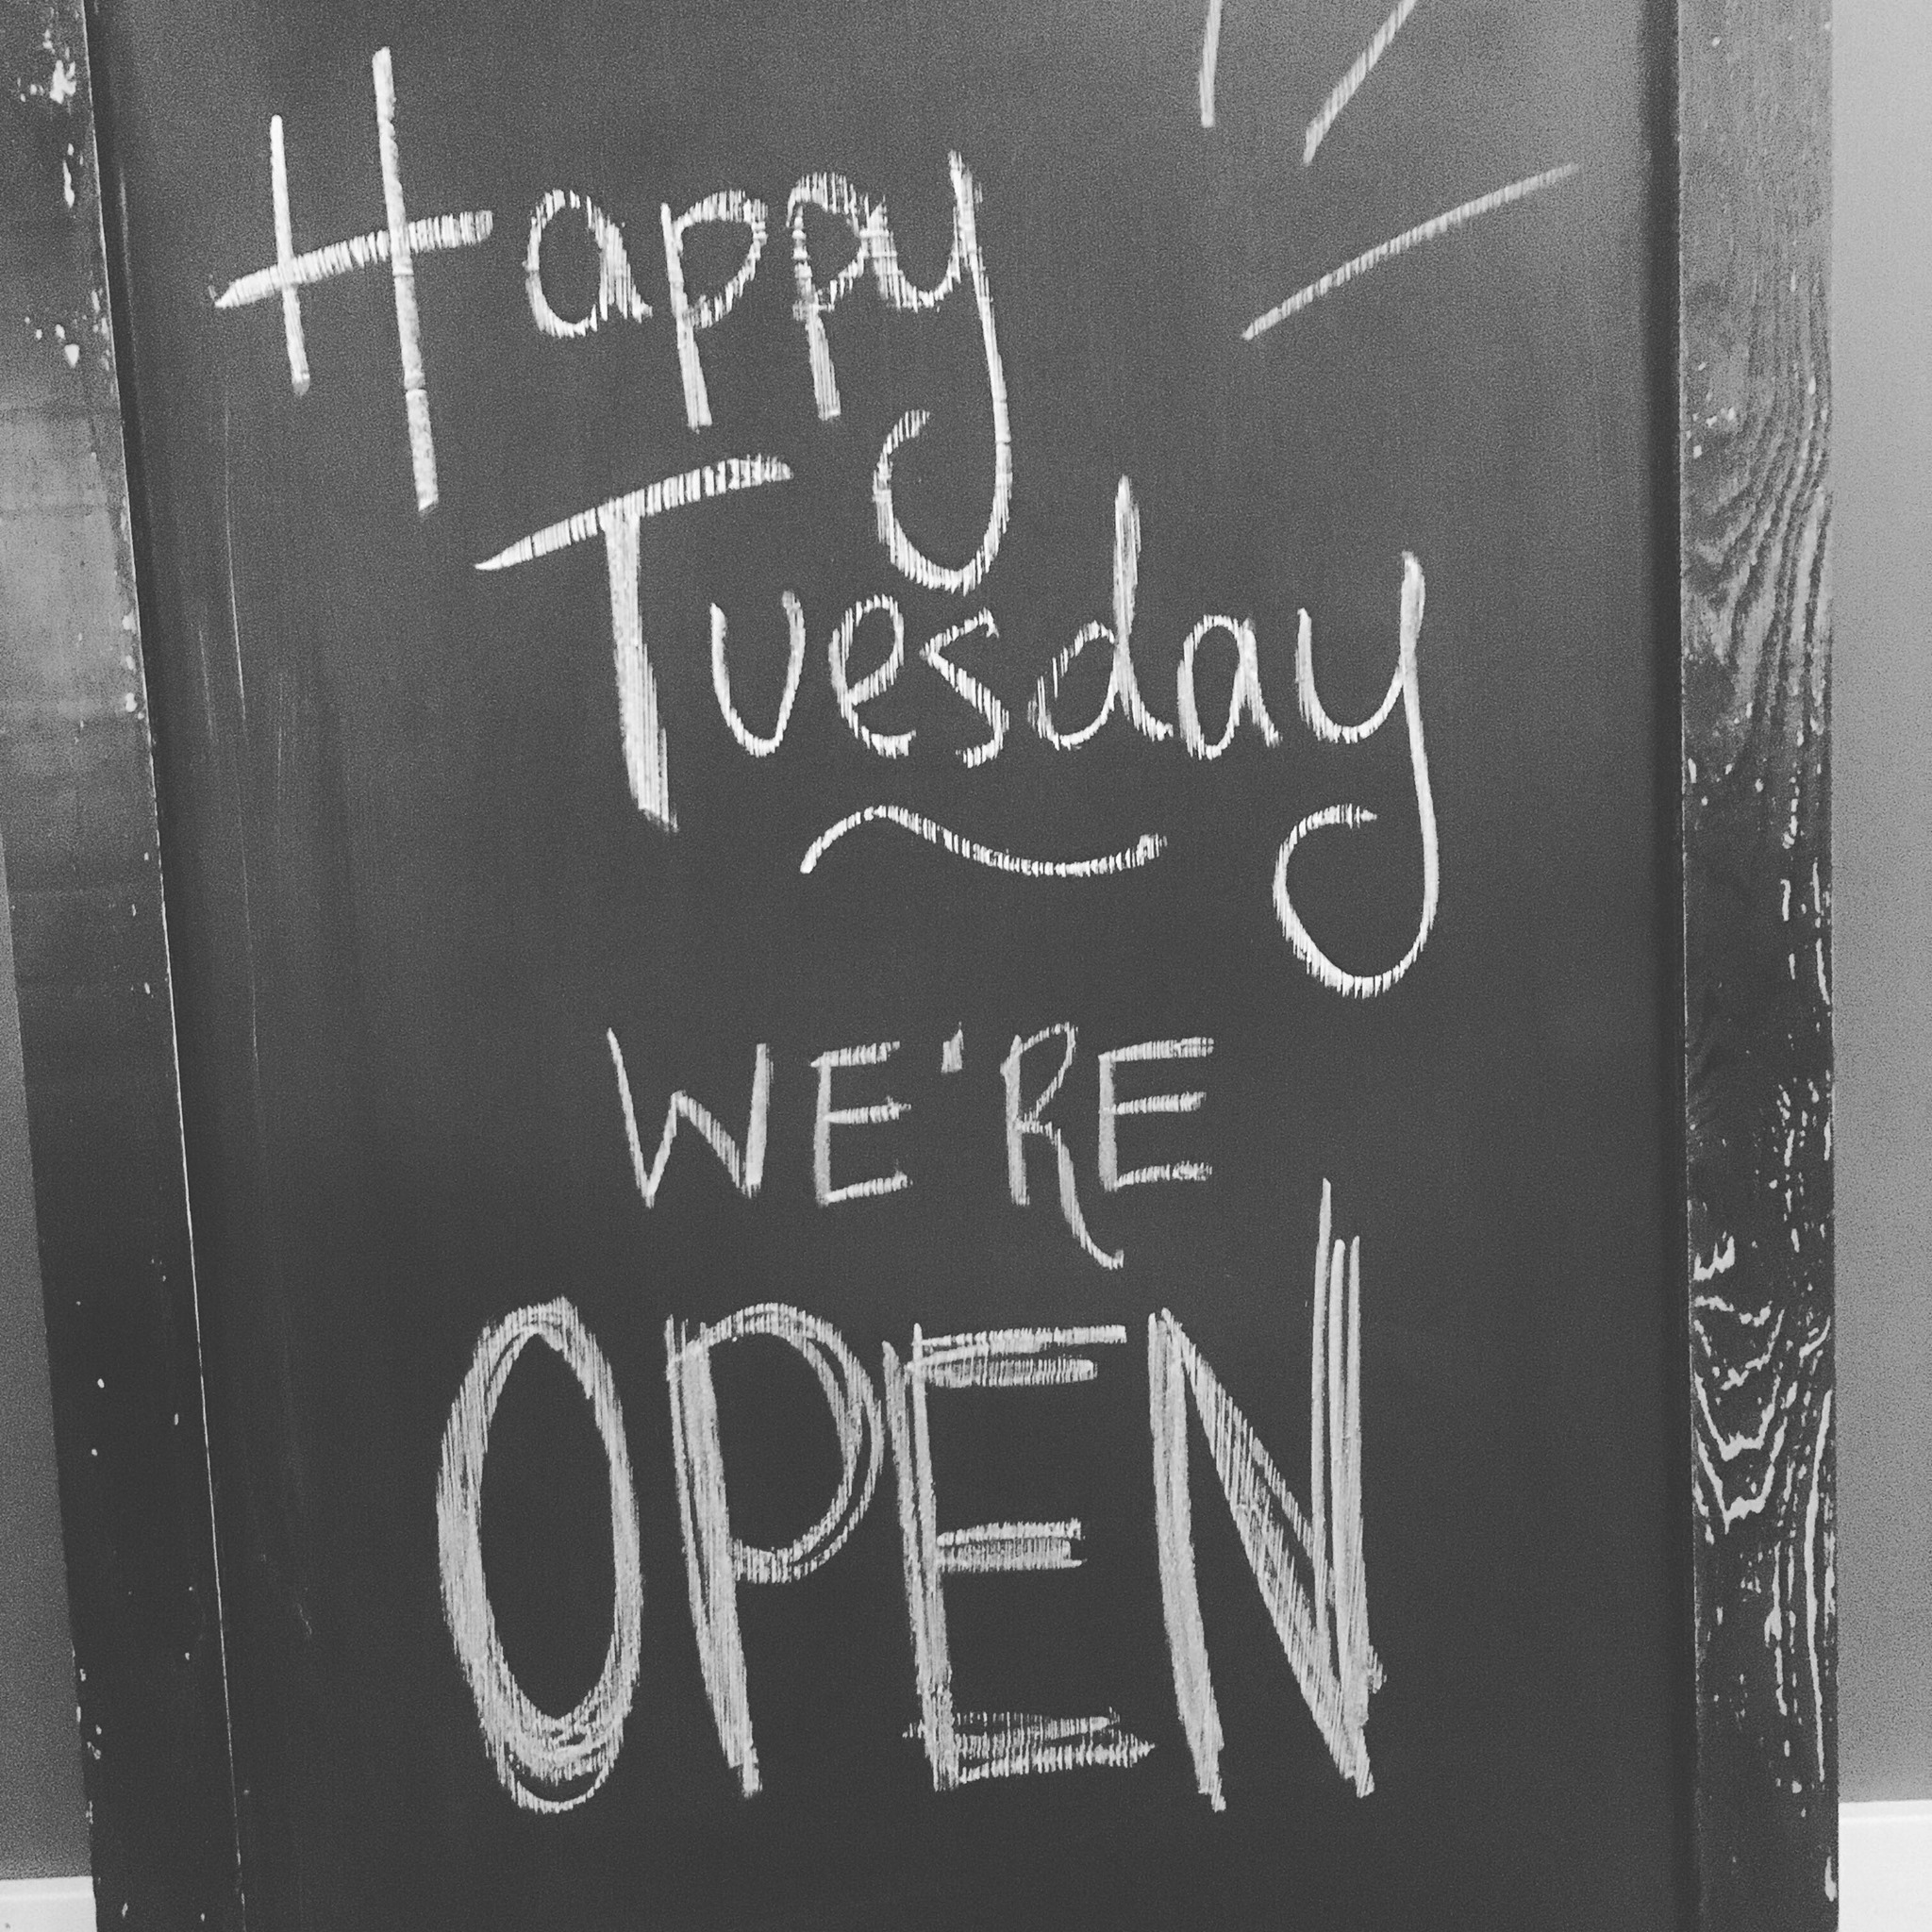 Happy
Tuesday
WE'RE
OPEN